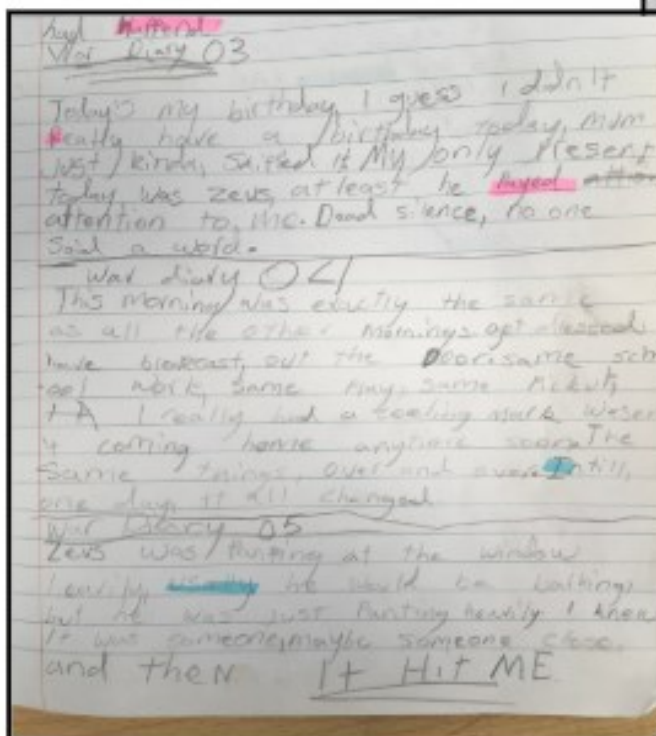 had
War Diary 03
Today's my birthday, I guess I didn't
Really have a birthday today, mum
just kinda, My only Present
today was Zeus, at least he Payed
attention to, me. Dead silence, no one
Said a word.
War diary 04
This morning was the same
as all the other mornings, get
have, out the Door, same
work, same Play, same
I really had a feeling Mark
coming home anytime soon. The
same things, over and over Intill,
one day, it all changed
War Diary 05
Zeus was Panting at the window
he would be
but he was just Panting heavily I knew
It was someone, maybe someone close,
and then It Hit ME